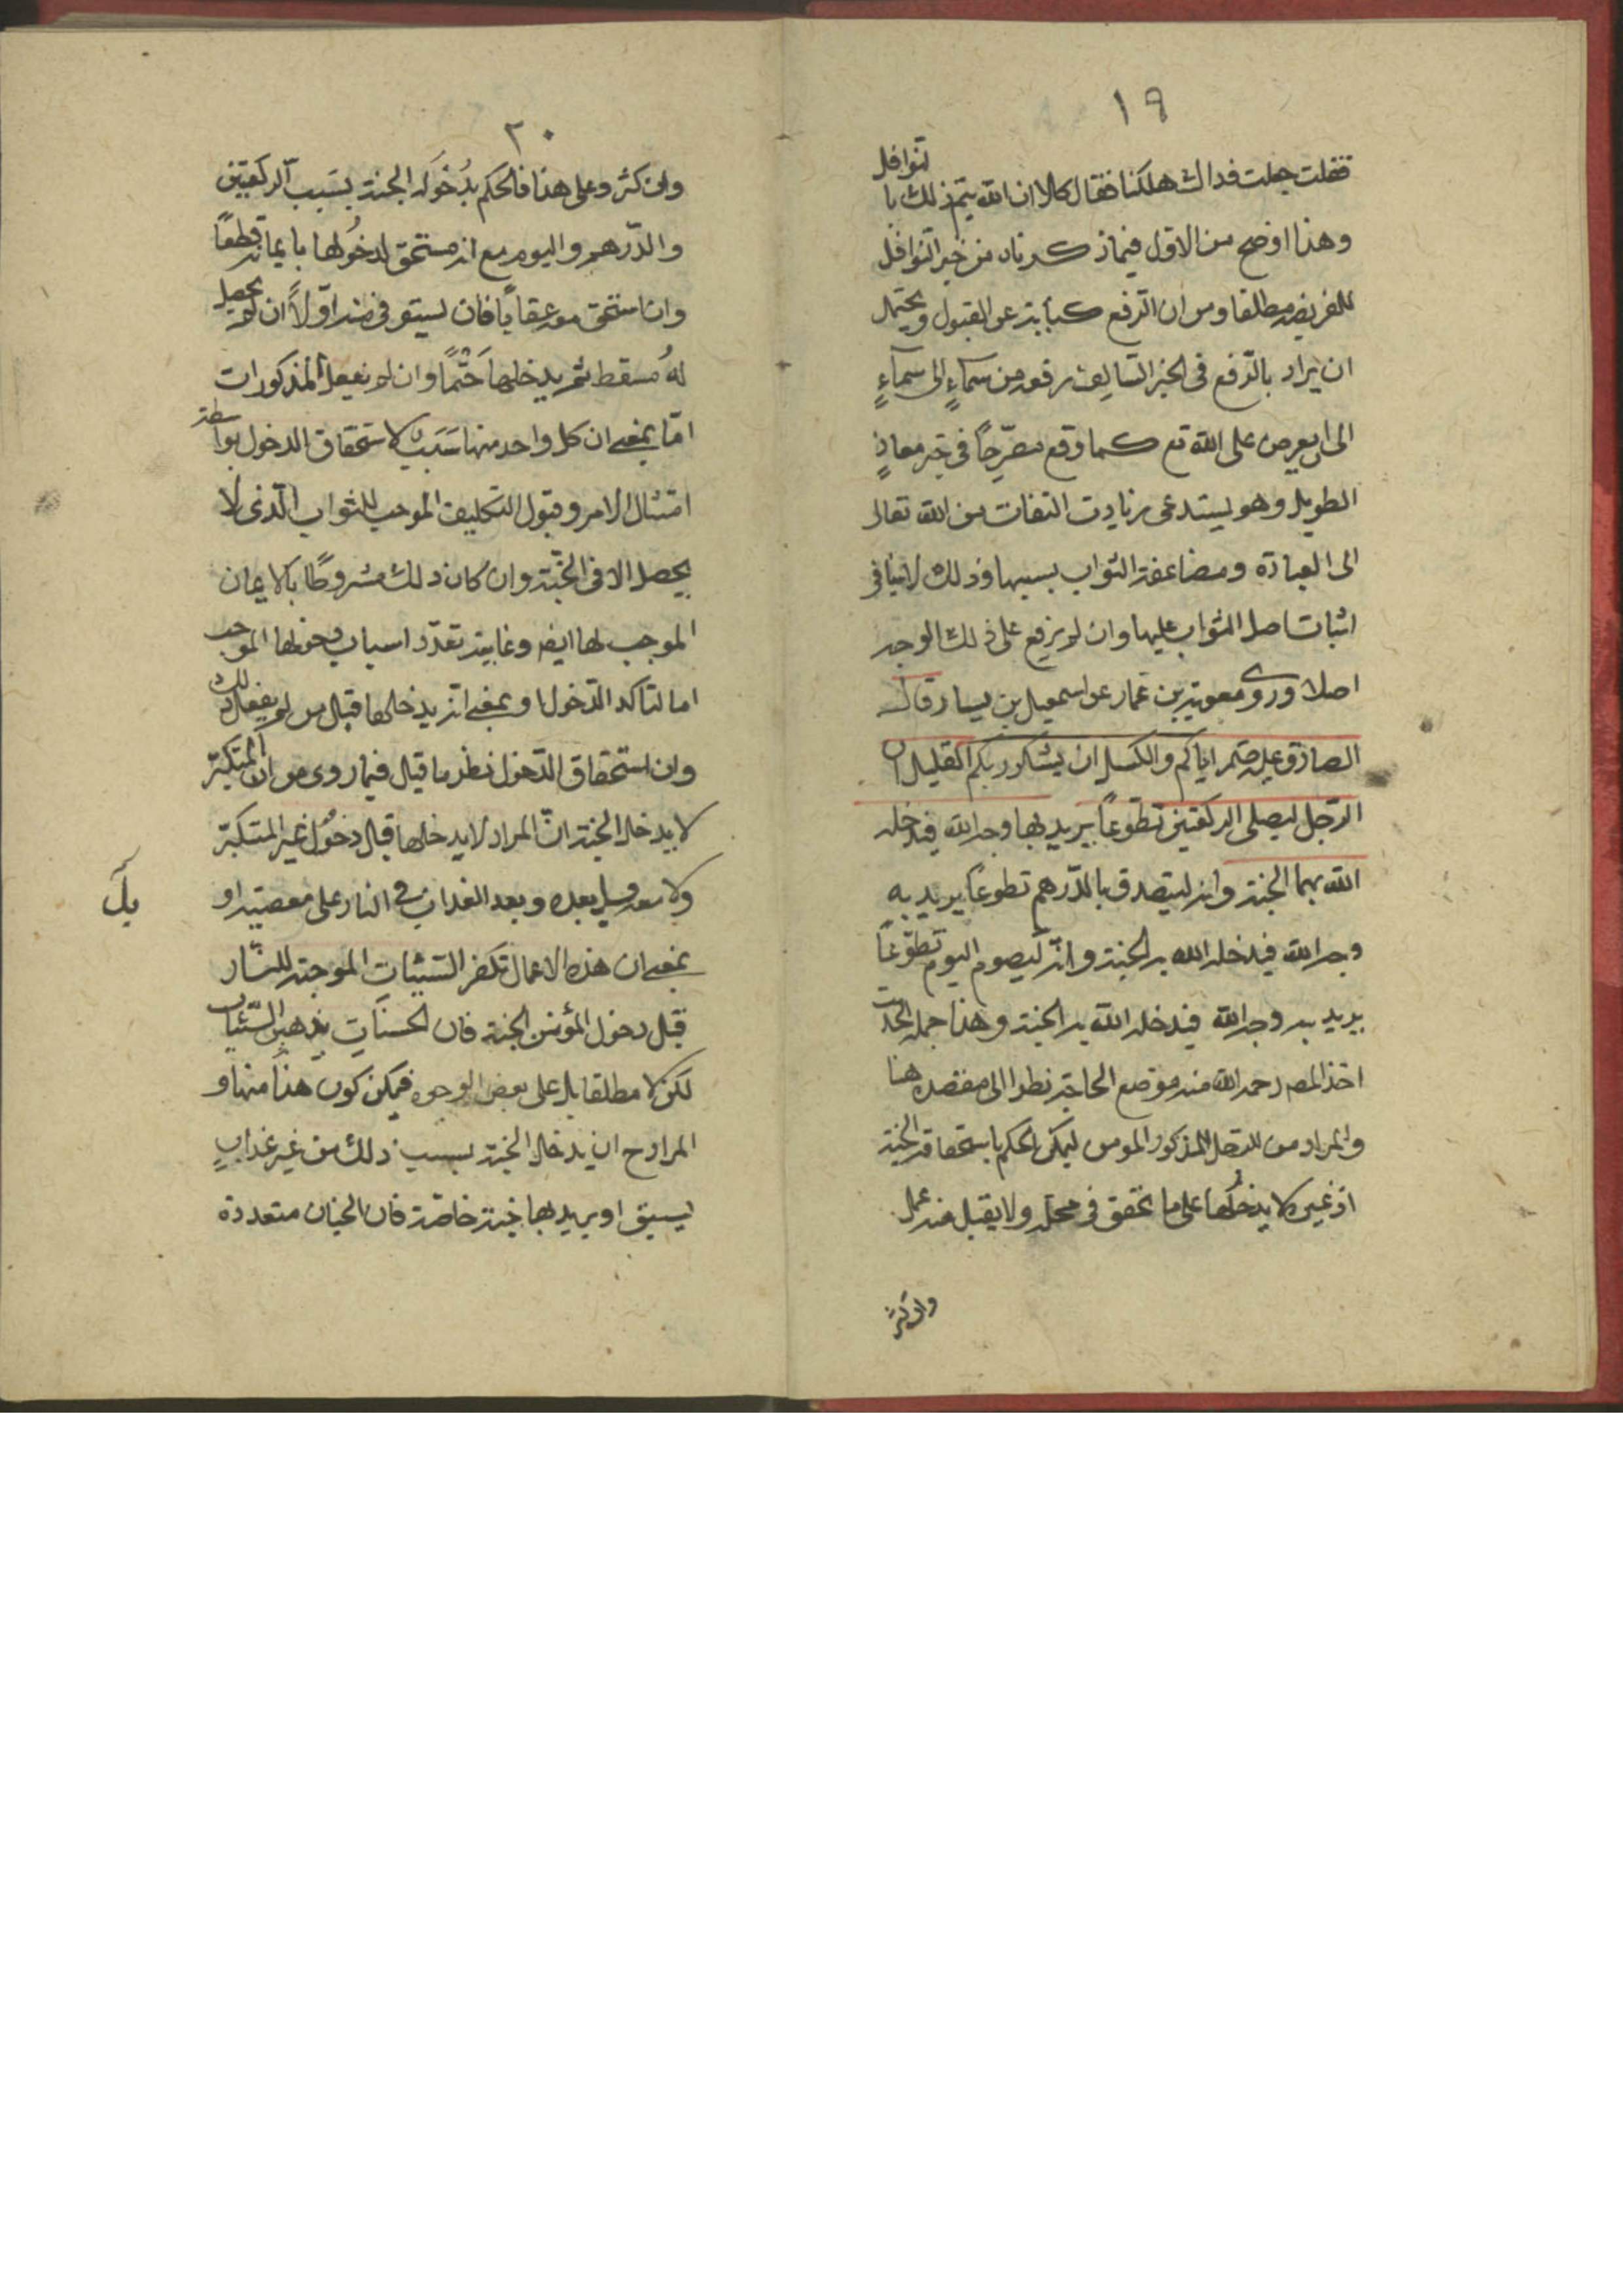 ١٩
فقلت جعلت فداك هلكنا فقال كلا ان الله يتم ذلك با
لنوافل
وهذا اوضح من الاول فيما ذكرناه من خبر النوافل
للفريضه مطلقا ومن ان الرفع كناية عن القبول ويحتمل
ان يراد بالرفع فى الخبر السالف رفعه من سمآءٍ الى سمآءٍ
الى ان يعرض على الله تع كما وقع مصرّحاً فى خبر معاذٍ
الطويل وهو يستدعى زيادت التفات من الله تعالى
الى العبادة ومضاعفة الثواب بسببها وذلك لا ينافى
اثبات اصل الثواب عليها وان لم ترفع على ذلك الوجه
اصلا وروى معوية بن عمار عن اسمعيل بن يسار قال
الصادق عليه اياكم والكسل ان ربكم يشكر القليل ان
الرّجل ليصلى الركعتين تطوعاً يريد بها وجه الله فيدخله
الله بهما الجنة وانه ليتصدق بالدّرهم تطوعاً يريد به
وجه الله فيدخله الله به الجنة وانّه ليصوم اليوم تطوّعاً
يريد به وجه الله فيدخله الله به الجنة وهذا جملة الحديث
اخذ المصـ رحمه الله منه موضع الحاجة نظرا الى مقصده هنا
والمراد من الرجل المذكور المومن ليمكن الحكم باستحقاقه الجنة
اذ غيره لا يدخُلها على ما تحقق فى محله ولا يقبل منه عمل
وان كثر
٢٠
وان كثر وعلى هذا فالحكم بدُخوله الجنة بسَبب الركعتين
والدّرهم واليوم مع انه مستحق لدخُولها بايمانه قطعًا
وان استحق معه عقاباً فان يستوفى منه اوّلاً ان لم يحصل
لهُ مسقط ثم يدخلها حَتْماً وان لم يفعل المذكورات
امّا بمعنى ان كل واحد منها سَبَب لاستحقاق الدخول بواسطة
امتثال الامر وقبول التكليف الموجب للثواب الّذى لا
يحصل الا فى الجنّة وان كان ذلك مشروطًا بالايمان
الموجب لها ايضا وغايته تعدّد اسباب دخولها الموجب
اما لتاكد الدخول او بمعنى انه يدخلها قبل من لم يفعل ذلك
وان استحقاق الدخول نظير ما قيل فيما روى من ان المتكبّر
لا يدخل الجنة انّ المراد لا يدخلها قبل دخُول غير المتكبّر
ولا معه بل بعده وبعد العذاب فى النار على معصيته او
بمعنى ان هذه الاعمال تكفر السّيّئات الموجبة للنّار
قبل دخول المؤمن الجنة فان الحسنَات يذهبن السّيّئات
لكن لا مطلقا بل على بعض الوجوه فيمكن كون هذا منها و
المراد ح ان يدخل الجنة بسبب ذلك من غير عذابٍ
يسبق او يريد بها جنة خاصّة فان الجنان متعددة